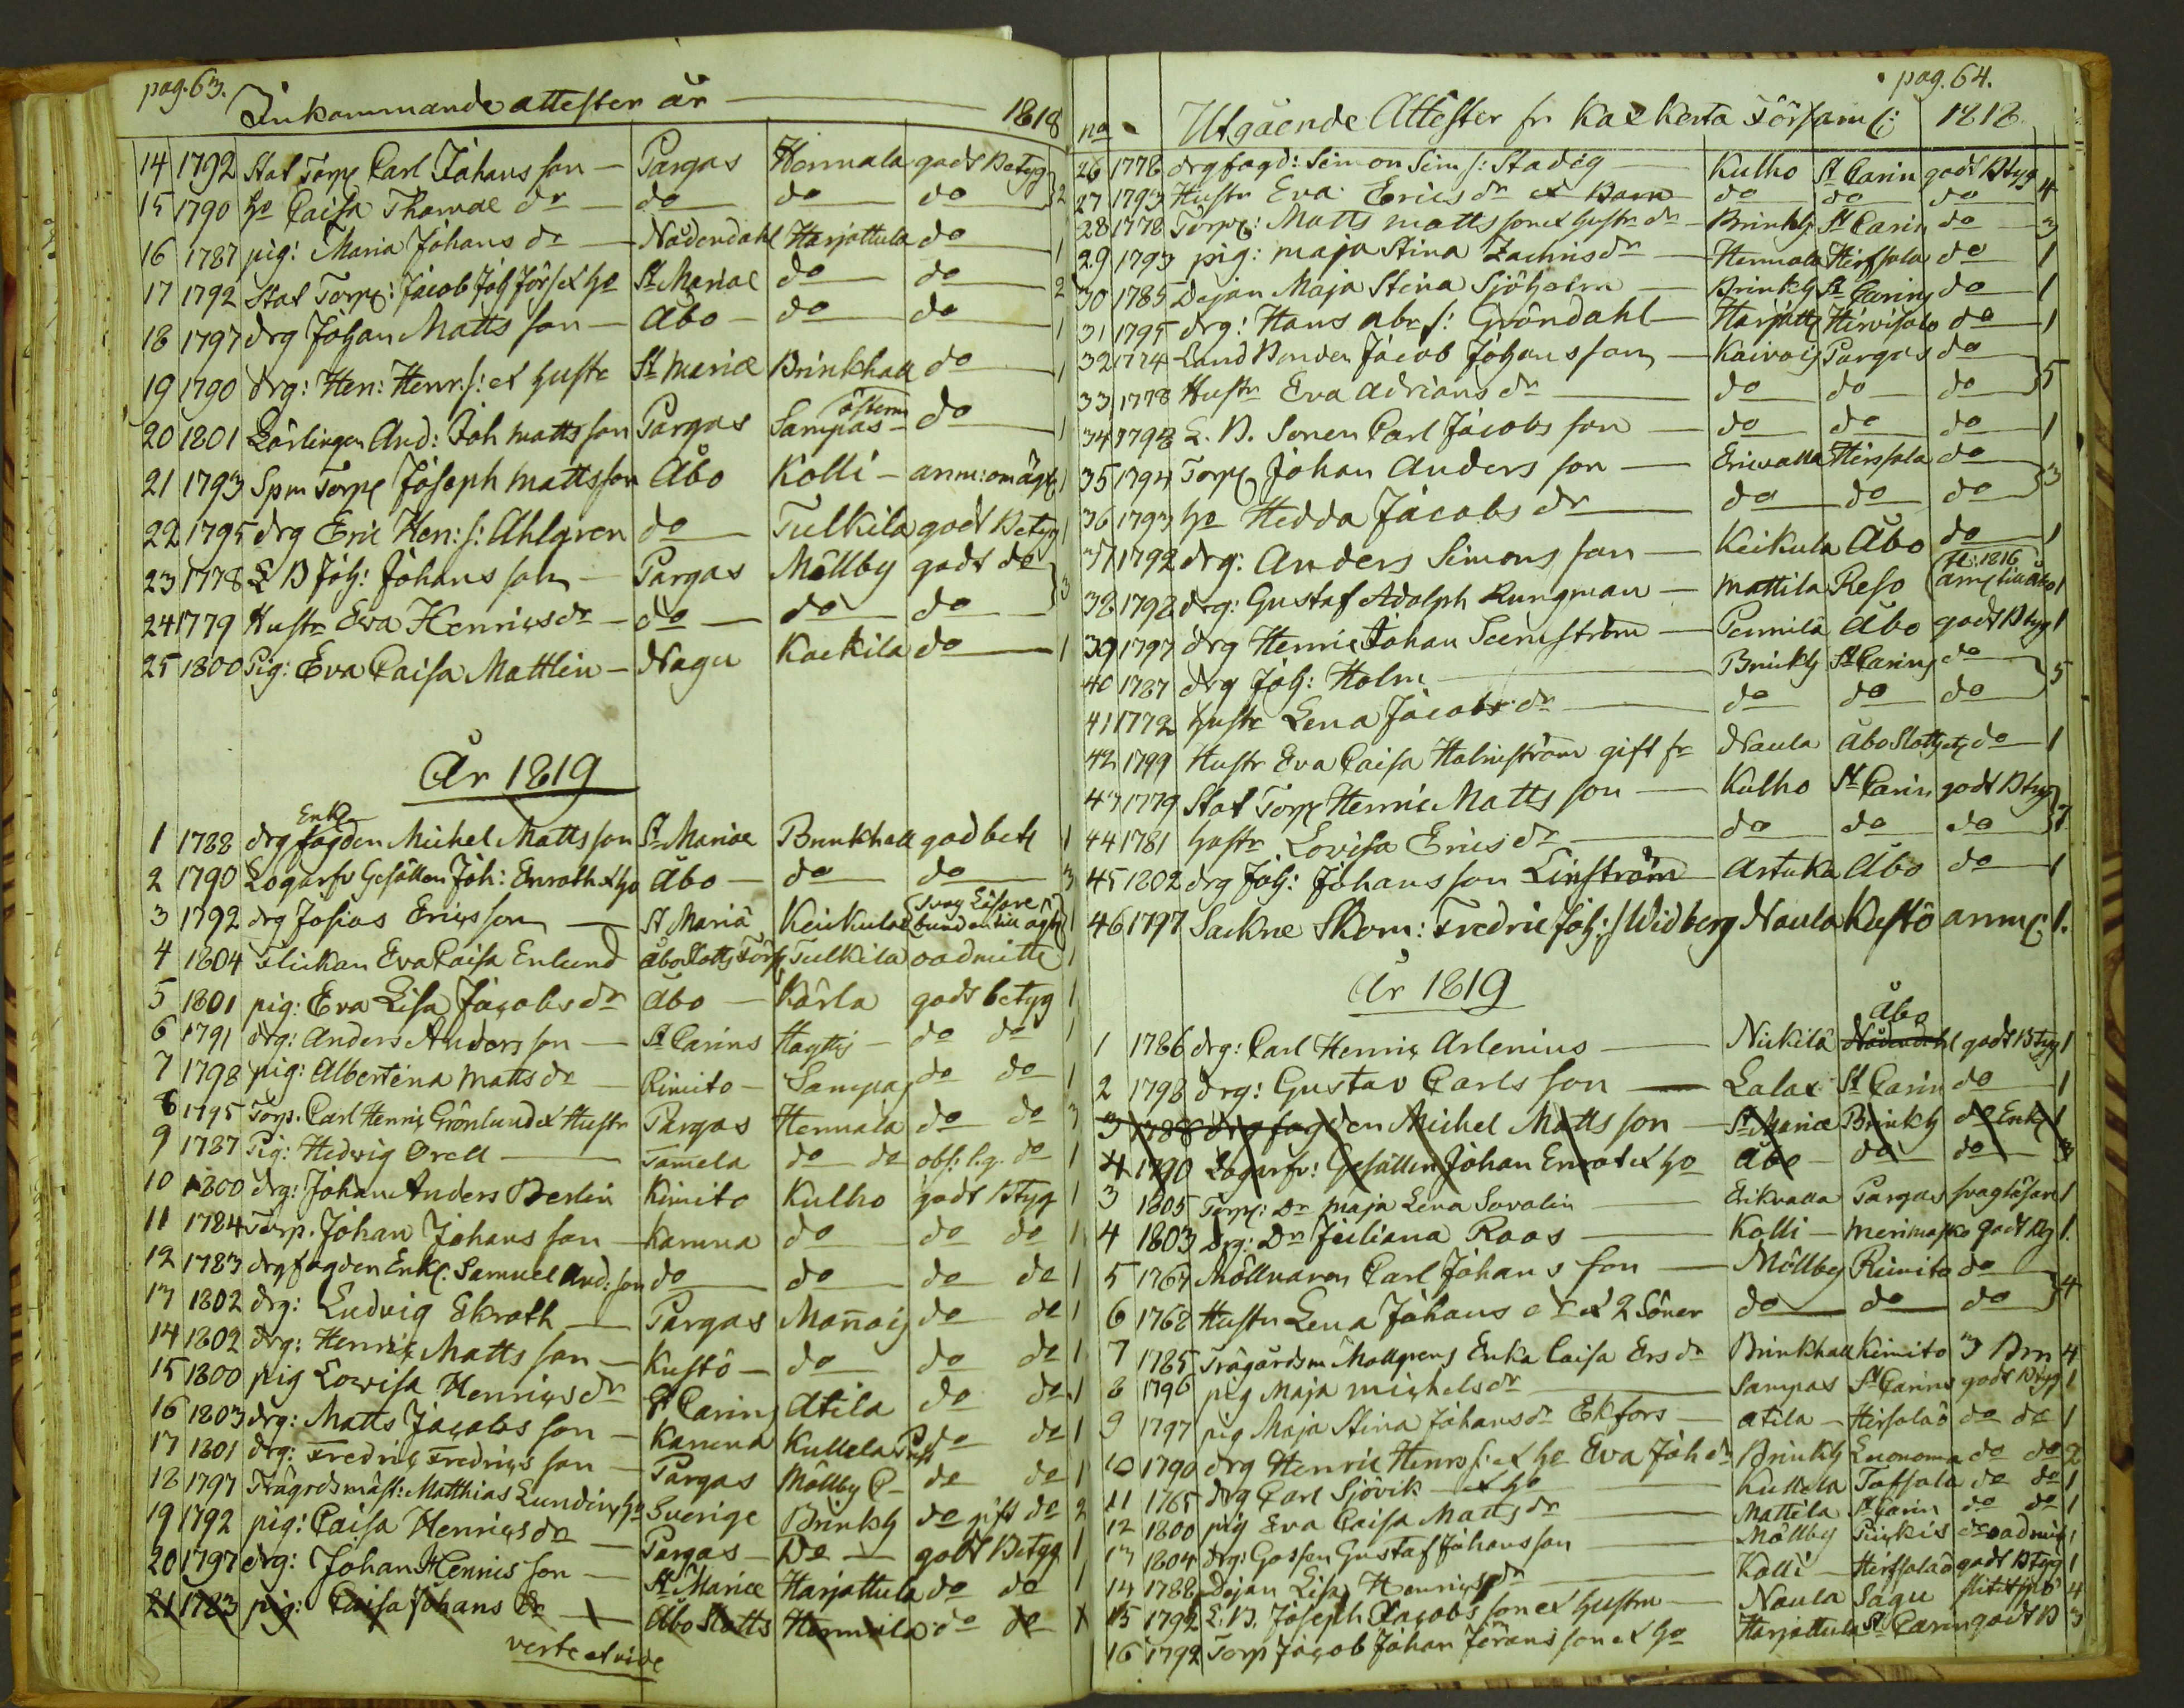 pag. 63.
Inkommande attester år — 1818
14 1792 Stat Torp Carl Johans son — Pargas Hennala godt Betyg
15 1790 ho Caisa Thomae dr — do do do 2
16 1787 pig: Maria Johans dr — Nådendahl Harjattula do 1
17 1792 Stat Torp: Jacob Joh Jörs et ho St Mariae do do 2
18 1797 drg Johan Matts son — Åbo — do do 1
19 1790 drg: Hen: Henr: s: et hustr St Mariæ Brinkhall do 1
20 1801 Lärlingen And: Joh matts son Pargas Sampas do 1
21 1793 Spm Torp Joseph mattsson Åbo Kolli — anm: om ägt 1
22 1795 drg Eric Hen: s: Ahlgren do Tulkila godt Betyg 1
23 1778 L B Joh: Johans son — Pargas Möllby godt do
24 1779 Hustr Eva Henrics dr — do do do 3
25 1800 Pig: Eva Caisa Mattlin — Nagu Kaekila do 1
År 1819
Enkl
1 1788 drg fogden Michel Matts son St Mariae Brinkhall god bet 1
2 1790 Logarfv Gesällen Joh: Enroth et ho Åbo — do do 3
3 1792 drg Josias Erics son — St Mariä Keikulae (svag Läsare, bunden till ägt) 1
4 1804 Flickan Eva Caisa Enlund Åbo Slotts Förs Tulkila oadmitt 1
5 1801 pig: Eva Lisa Jacobs dr Åbo — Kårla godt betyg 1
6 1791 drg: Anders Anders son — St Carins Haytti — do do 1
7 1798 pig: Albertina Matts dr — Rimito — Sampas do do 1
8 1795 Torp. Carl Henric Grönlund et Hustr Pargas Hennala do do 3
9 1787 Pig: Hedvig Orell — Tamela do do obs: l.g. do 1
10 1800 drg: Johan Anders Berlin Kimito Kulho godt Btyg 1
11 1784 Torp. Johan Johans son — Karuna do do do 1
12 1783 drg fogden Enkl. Samuel And: son do do do do 1
13 1802 drg: Ludvig Ekroth — Pargas Mañais do do 1
14 1802 drg: Henric Matts son — Kustö — do do do 1
15 1800 pig Lovisa Henrics dr St Carins Atila do do 1
16 1803 drg: Matts Jacobs son — Karuna Kullela do do 1
17 1801 drg: Fredric Fredrics son — Pargas Möllby P — do do 1
18 1797 Trägårdsmäst: Matthias Lundin et ho Sverige Brinkh do gift do 2
19 1792 pig: Caisa Henrics dr — Pargas — Do — godt Betyg 1
20 1797 drg: Johan Hennis son — St Mariæ Harjattula do do 1
21 1783 pig: Caisa Johans dr — Åbo Slotts Hennala do do 1
verte et vide
pag. 64.
no Utgående Attester fr Kaxkerta Församl: 1818
26 1778 drg fogd: Simon Sim s: Stadig Kulho St Carin godt Btyg
27 1793 Hustr Eva Erics dr et Barn do do do 4
28 1778 Torp: Matts matts son et hustr dr — Brinkh St Carin do 3
29 1793 pig: maja Stina Zachris dr — Hennala Hirfsala do 1
30 1785 Dejan Maja Stina Sjöholm — Brinkh St Carins do 1
31 1795 drg: Hans abr s: Gröndahl — Harjatt Hirvisalo do 1
32 1774 Land Bonden Jacob Johans son — Kaivois Pargas do
33 1778 Hustr Eva adrians dr — do do do 5
34 1798 L. B. Sonen Carl Jacobs son — do do do 1
35 1794 Torp Johan Anders son — Ericvalla Hirsala do
36 1793 ho Hedda Jacobs dr — do do do 3
37 1792 drg: Anders Simons son — Keikula Åbo do 1
38 1798 drg: Gustaf Adolph Rungman — Mattila Reso 1
39 1797 drg Henric Johan Seemström — Pennilä Åbo godt Btyg 1
40 1787 drg Joh: Holm — Brinkh St Carins do
41 1772 hustr Lena Jacobs dr — do do do 5
42 1799 Hustr Eva Caisa Holmström gift fr Naula Åbo Slotts do 1
43 1779 Stat Torp Henric Matts son — Kulho St Carin godt Btyg
44 1781 hustr Lovisa Erics dr — do do do 7
45 1802 drg Joh: Johans son Linström Artuka Åbo do 1
46 1797 Sockne Skom: Fredric Joh: s Widberg Naula Kustö anm: 1.
År 1819
Åbo
1 1786 drg: Carl Henric Arlenius — Nickilä Nådendahl godt Btyg 1
2 1798 drg: Gustav Carls son — Lalax St Carin do 1
3 1788 drg fogden Michel Matts son — St Mariæ Brinkh do Enkl 1
4 1790 Logarfv: Gesällen Johan Enrot et ho Åbo — do do 3
3 1805 Torp: Dr Maja Lena Savolin — Erikvalla Pargas svag läsare 1
4 1803 Drg: Dr Juliana Roos — Kolli — Merimasko godt Btg 1.
5 1767 Möllnaren Carl Johans son — Möllby Rimito do
6 1768 Hustru Lena Johans dr et 2 Söner do do do 4
7 1785 Trägårdsm Mollgrens Enka Caisa Ers dr Brinkhall Kimito 3 Brn 4
8 1796 pig Maja Michels dr — Sampas St Carins godt Btyg 1
9 1797 pig Maja Stina Johans dr Ekfors — Atila — Hirsalaö do do 1
10 1790 drg Henric Henr s: et ho Eva Joh dr Brinkh Luonoma do do 2
11 1765 drg Carl Sjövik — et ho Kullela Tofsala do do 1
12 1800 pig Eva Caisa Matts dr — Mattila St Carin do do 1
13 1804 drg: Gossen Gustaf Johansson — Möllby Piickis do oadmitt 1
14 1788 Dejan Lisa Henrics dr — Kolli — Hirfsalaö godt Btyg 1
15 1792 L. B. Joseph Jacobs son et hustru — Naula Sagu 4
16 1792 Torp Jacob Johan Jörans son et ho Harjattula St Carin godt B 3